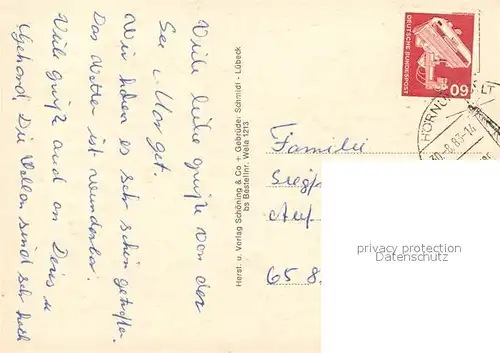 Viele liebe Grüße von der
See u. Margret.
Wir haben es sehr schön getroffen.
Das Wetter ist wunderbar.
Viele Grüße auch an Doris u
Gehard. Die Wellen sind sehr hoch
Herst. u. Verlag Schöning & Co + Gebrüder Schmidt - Lübeck
bs Bestellnr. Wela 1213
DEUTSCHE BUNDESPOST
60
HÖRNUM
LT
30.-8.83-14
Familie
Siegf
Auf
65 8
privacy protection
Datenschutz